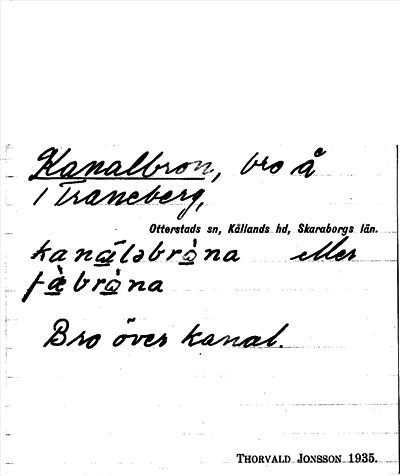 Kanalbron, bro å
1 Traneberg,
Otterstads sn, Kållands hd, Skaraborgs län.
kanáləbrò̱na eller
fæ̱̀brò̱na
Bro över kanal.
THORVALD JONSSON 1935.